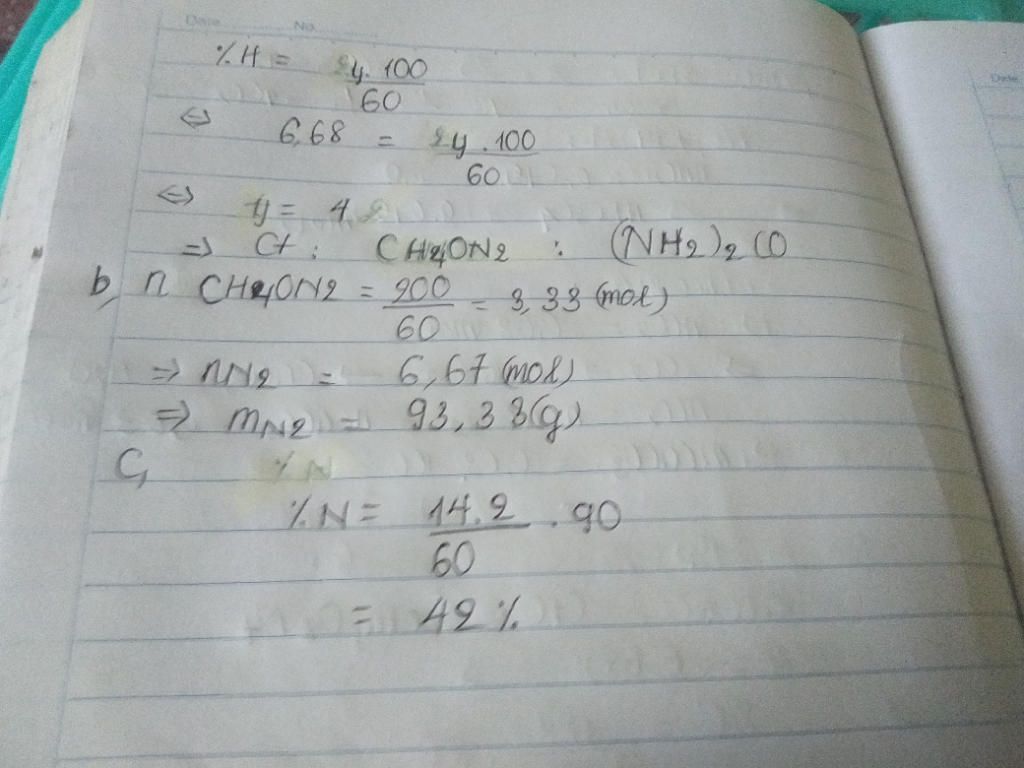 Date No.
%H = y.100/60
⇔ 6,68 = y.100/60
⇔ y = 4
⇒ Ct : CH4ON2 : (NH2)2CO
b, n CH4ON2 = 200/60 = 3,33 (mol)
⇒ nN2 = 6,67 (mol)
⇒ mN2 = 93,38 (g)
C, % N
%N = 14.2/60 . 90
= 42 %
Date